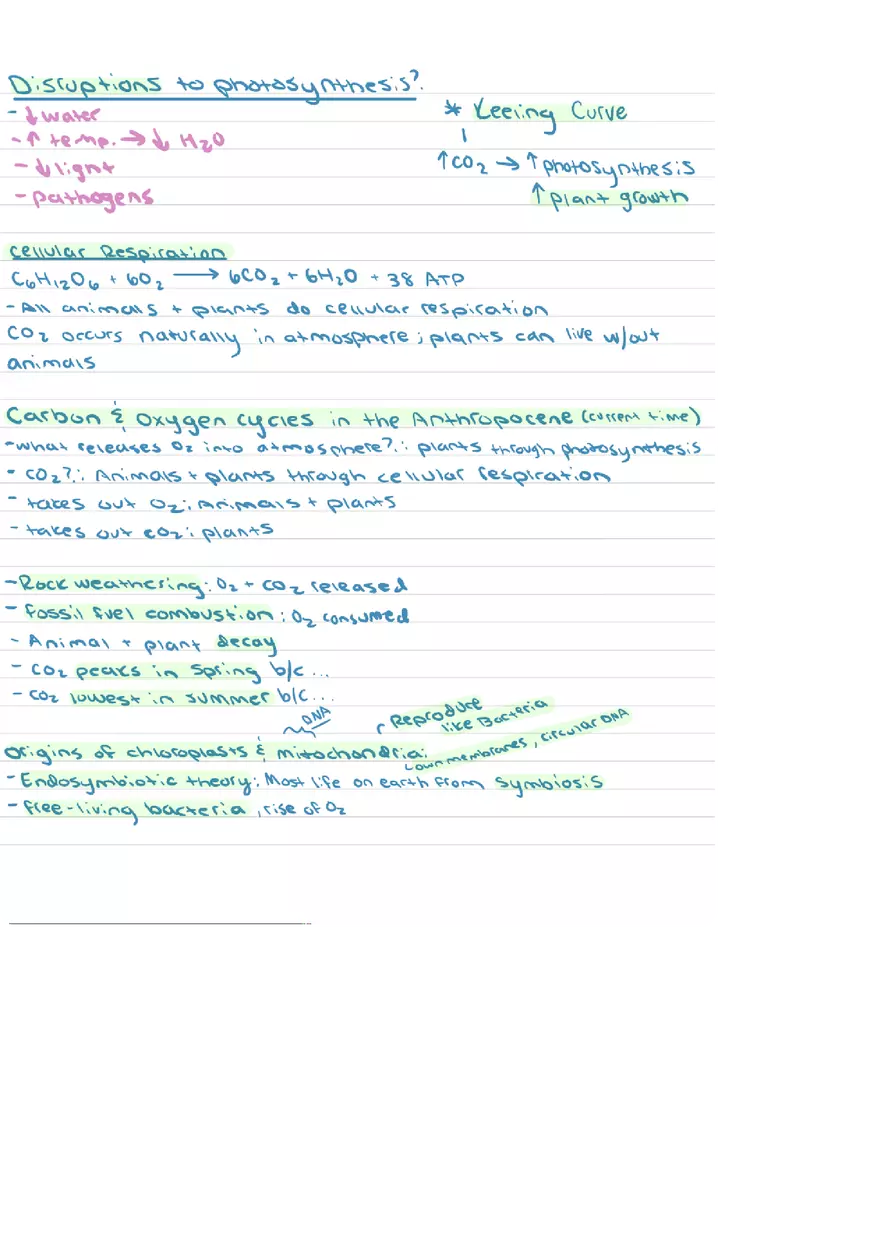 Disruptions to photosynthesis?:
- ↓ water
- ↑ temp. → ↓ H₂O
- ↓ light
- pathogens
* Keeling Curve
↑ CO₂ → ↑ photosynthesis
↑ plant growth
Cellular Respiration
C₆H₁₂O₆ + 6O₂ → 6CO₂ + 6H₂O + 38 ATP
- All animals + plants do cellular respiration
CO₂ occurs naturally in atmosphere; plants can live w/out
animals
Carbon & Oxygen cycles in the Anthropocene (current time)
- What releases O₂ into atmosphere?: plants through photosynthesis
- CO₂?: Animals + plants through cellular respiration
- takes out O₂: Animals + plants
- takes out CO₂: plants
- Rock weathering: O₂ + CO₂ released
- fossil fuel combustion: O₂ consumed
- Animal + plant decay
- CO₂ peaks in Spring b/c ...
- CO₂ lowest in summer b/c...
DNA
Reproduce
like Bacteria
Origins of chloroplasts & mitochondria:
own membranes, circular DNA
- Endosymbiotic theory: Most life on earth from symbiosis
- free-living bacteria, rise of O₂